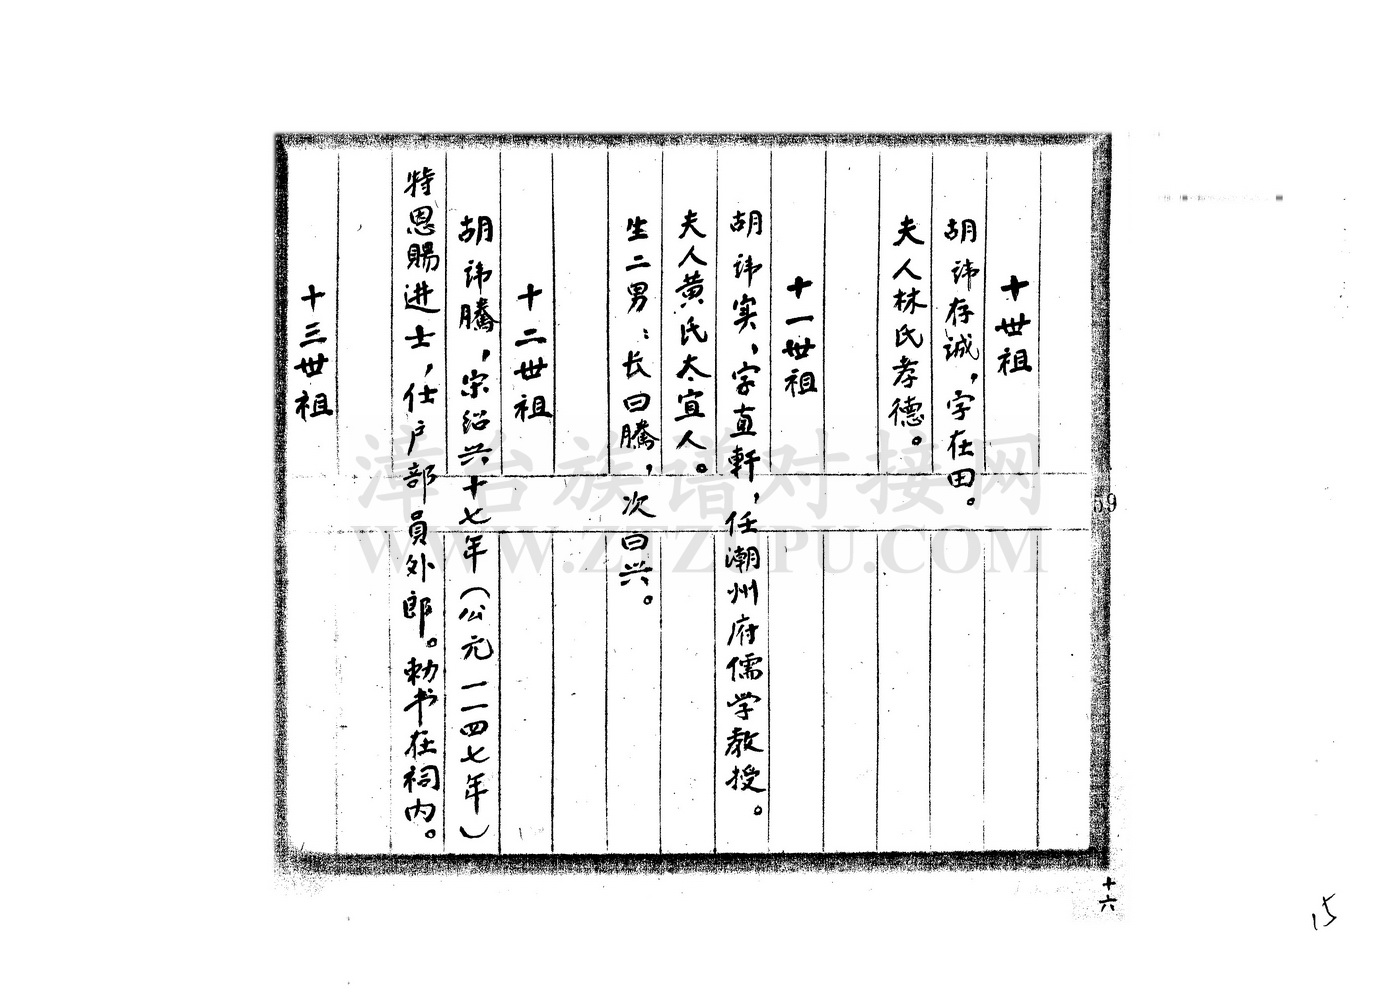 十世祖
胡讳存诚，字在田。
夫人林氏孝德。
十一世祖
胡讳实，字直軒，任潮州府儒学教授。
夫人黄氏太宜人。
生二男：长曰騰，次曰兴。
十二世祖
胡讳騰，宗绍兴十七年（公元一一四七年）
特恩賜进士，任户部員外郎。勅书在祠内。
十三世祖
59
十六
15
漳台族谱对接网
WWW.ZTZUPU.COM